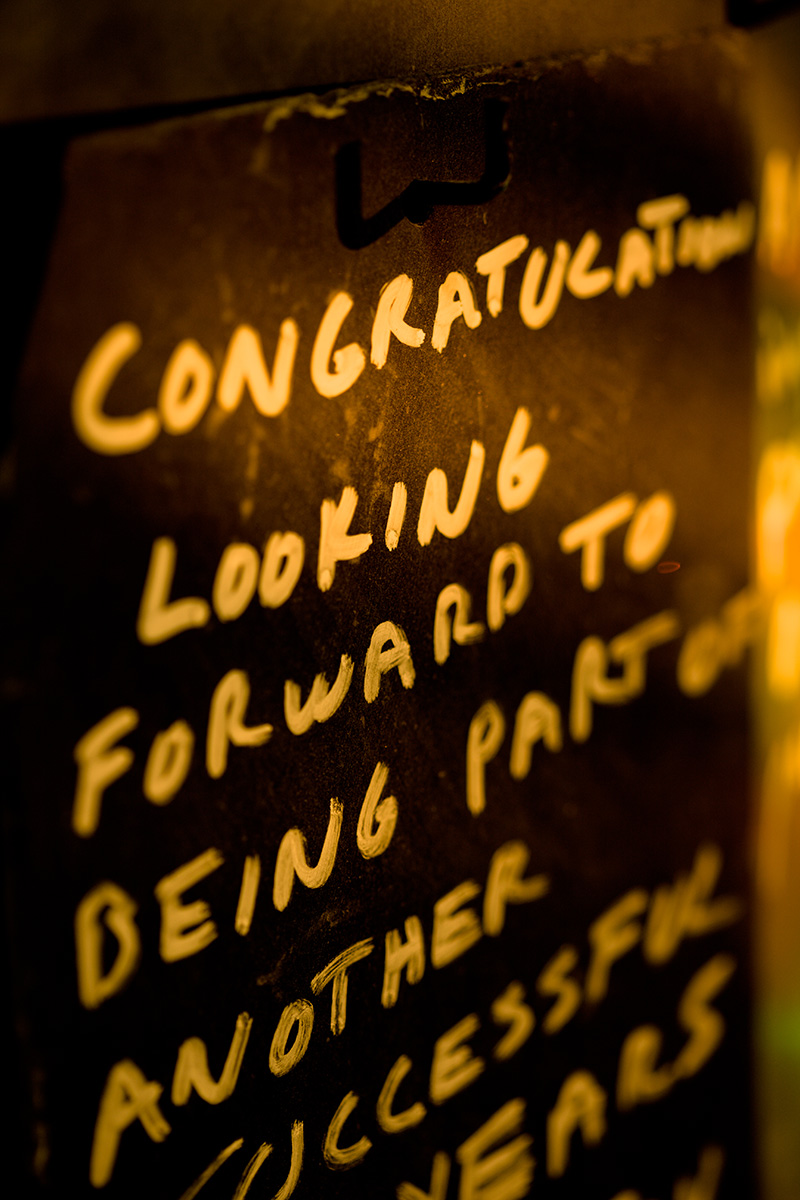 CONGRATULATIONS
LOOKING
FORWARD TO
BEING PART OF
ANOTHER
SUCCESSFUL
YEARS